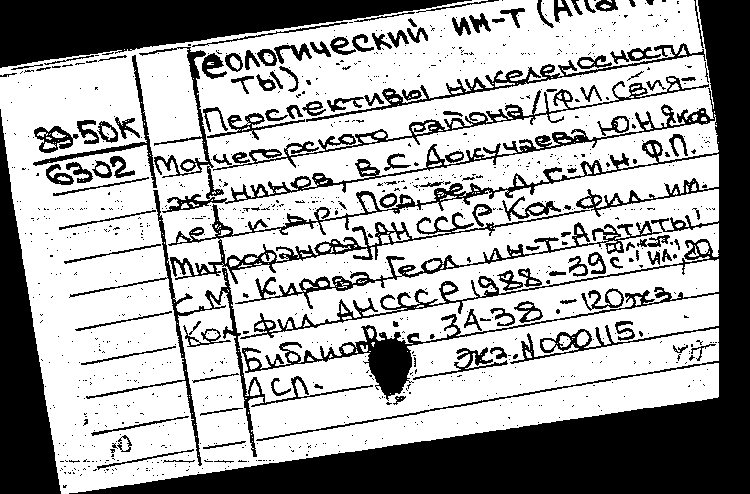 Геологический ин-т (Апати-
ты).
Перспективы никеленосности
89-50К
6302
Мончегорского района/[Ф.И. Свия-
женинов, В.С. Докучаева, Ю.Н. Яков
лев и др.; Под ред. д. г.-м.н. Ф.П.
Митрофанова]; АН СССР, Кол. фил. им.
С.М. Кирова, Геол. ин-т.-Апатиты:
Кол. фил. АН СССР, 1988.-39с.: ил.; 20
Библиогр.: с. 34-38.-120экз.
ДСП. Экз. N000115.